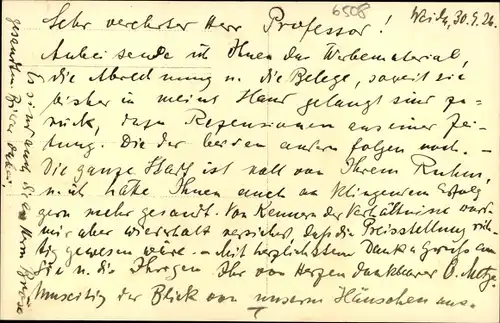 6508
Weida, 30.9.26.
Sehr verehrter Herr Professor!
Anbei sende ich Ihnen das Werbematerial,
die Abrechnung u. die Belege, soweit sie
bisher in meine Hand gelangt sind zu-
rück, dazu Rezensionen aus einer Zei-
tung. Die der beiden andern folgen noch. –
Die ganze Stadt ist voll von Ihrem Ruhm,
u. ich hätte Ihnen auch an klingendem Erfolg
gern mehr gesandt. Von Kennern der Verhältnisse wurde
mir aber wiederholt versichert, daß die Preisstellung rich-
tig gewesen wäre. – Mit herzlichstem Dank u. Gruß an
Sie u. die Ihrigen Ihr von Herzen dankbarer O. Metzge
Umseitig der Blick von unserem Häuschen aus.
Es sind auch die an Herrn
gesandten Bilder dabei.